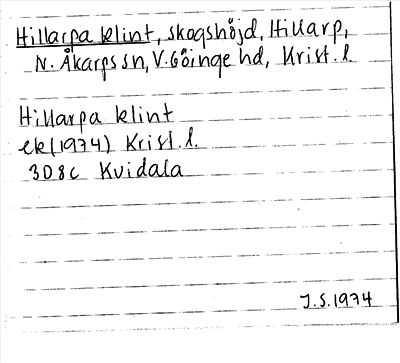 Hillarpa klint, skogshöjd, Hillarp,
N. Åkarps sn, V. Göinge hd, Krist. l.
Hillarpa klint
ek (1974) Krist. l.
3D8c Kvidala
J.S. 1974